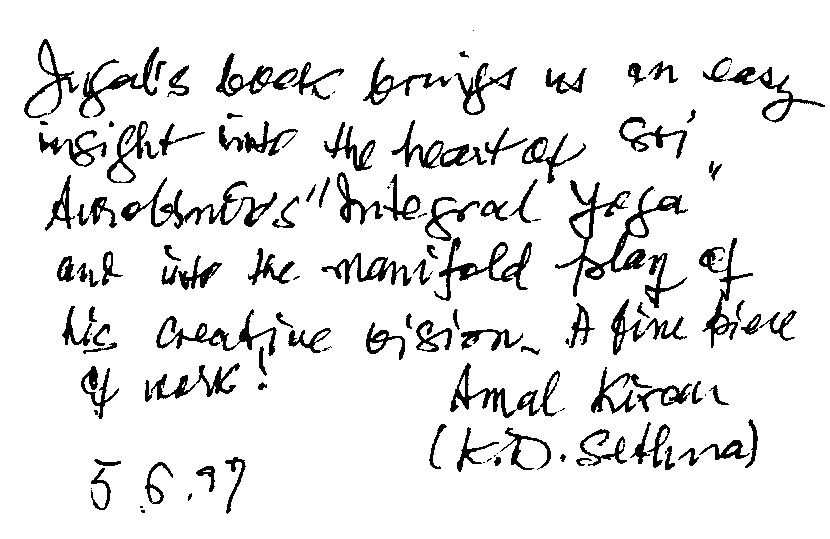 Jugal's book brings us an easy
insight into the heart of Sri
Aurobindo's "Integral Yoga"
and into the manifold play of
his creative vision. A fine piece
of work!
Amal Kiran
(K.D. Sethna)
5.6.97